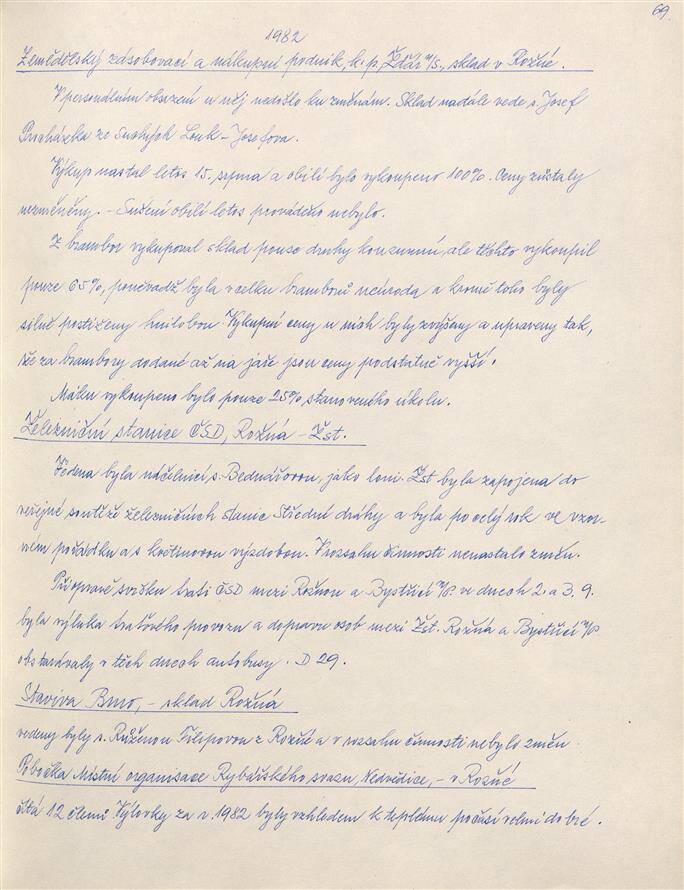 69.
1982
Zemědělský zásobovací a nákupní podnik, k.p. Žďár n/s., sklad v Rožné.
V personálním obsazení u něj nedošlo ku změnám. Sklad nadále vede s. Josef
Procházka ze Suchých Louk - Josefova.
Výkup nastal letos 15. srpna a obilí bylo vykoupeno 100%. Ceny zůstaly
nezměněny. - Sušení obilí letos prováděno nebylo.
Z brambor vykupoval sklad pouze druhy konzumní, ale těchto vykoupil
pouze 65%, poněvadž byla v celku bramborů neúroda a kromě toho byly
silně postiženy hnilobou. Výkupní ceny u nich byly zvýšeny a upraveny tak,
že za brambory dodané až na jaře jsou ceny podstatně vyšší.
Máku vykoupeno bylo pouze 25% stanoveného úkolu.
Železniční stanice ČSD, Rožná - Žst.
Vedena byla náčelnicí s. Bednářovou, jako loni. Žst byla zapojena do
veřejné soutěže železničních stanic Střední dráhy a byla po celý rok ve vzor-
ném pořádku a s květinovou výzdobou. V rozsahu činnosti nenastalo změn.
Při opravě svršku trati ČSD mezi Rožnou a Bystřicí n/P. ve dnech 2. a 3. 9.
byla výluka traťového provozu a dopravu osob mezi Žst. Rožná a Bystřicí n/P
obstarávaly v těch dnech autobusy. D 29.
Staviva Brno, - sklad Rožná
vedeny byly s. Růženou Filipovou z Rožné a v rozsahu činnosti nebylo změn.
Pobočka Místní organisace Rybářského svazu, Nedvědice, - v Rožné
Má 12 členů. Výlovky za r. 1982 byly vzhledem k teplému počasí velmi dobré.